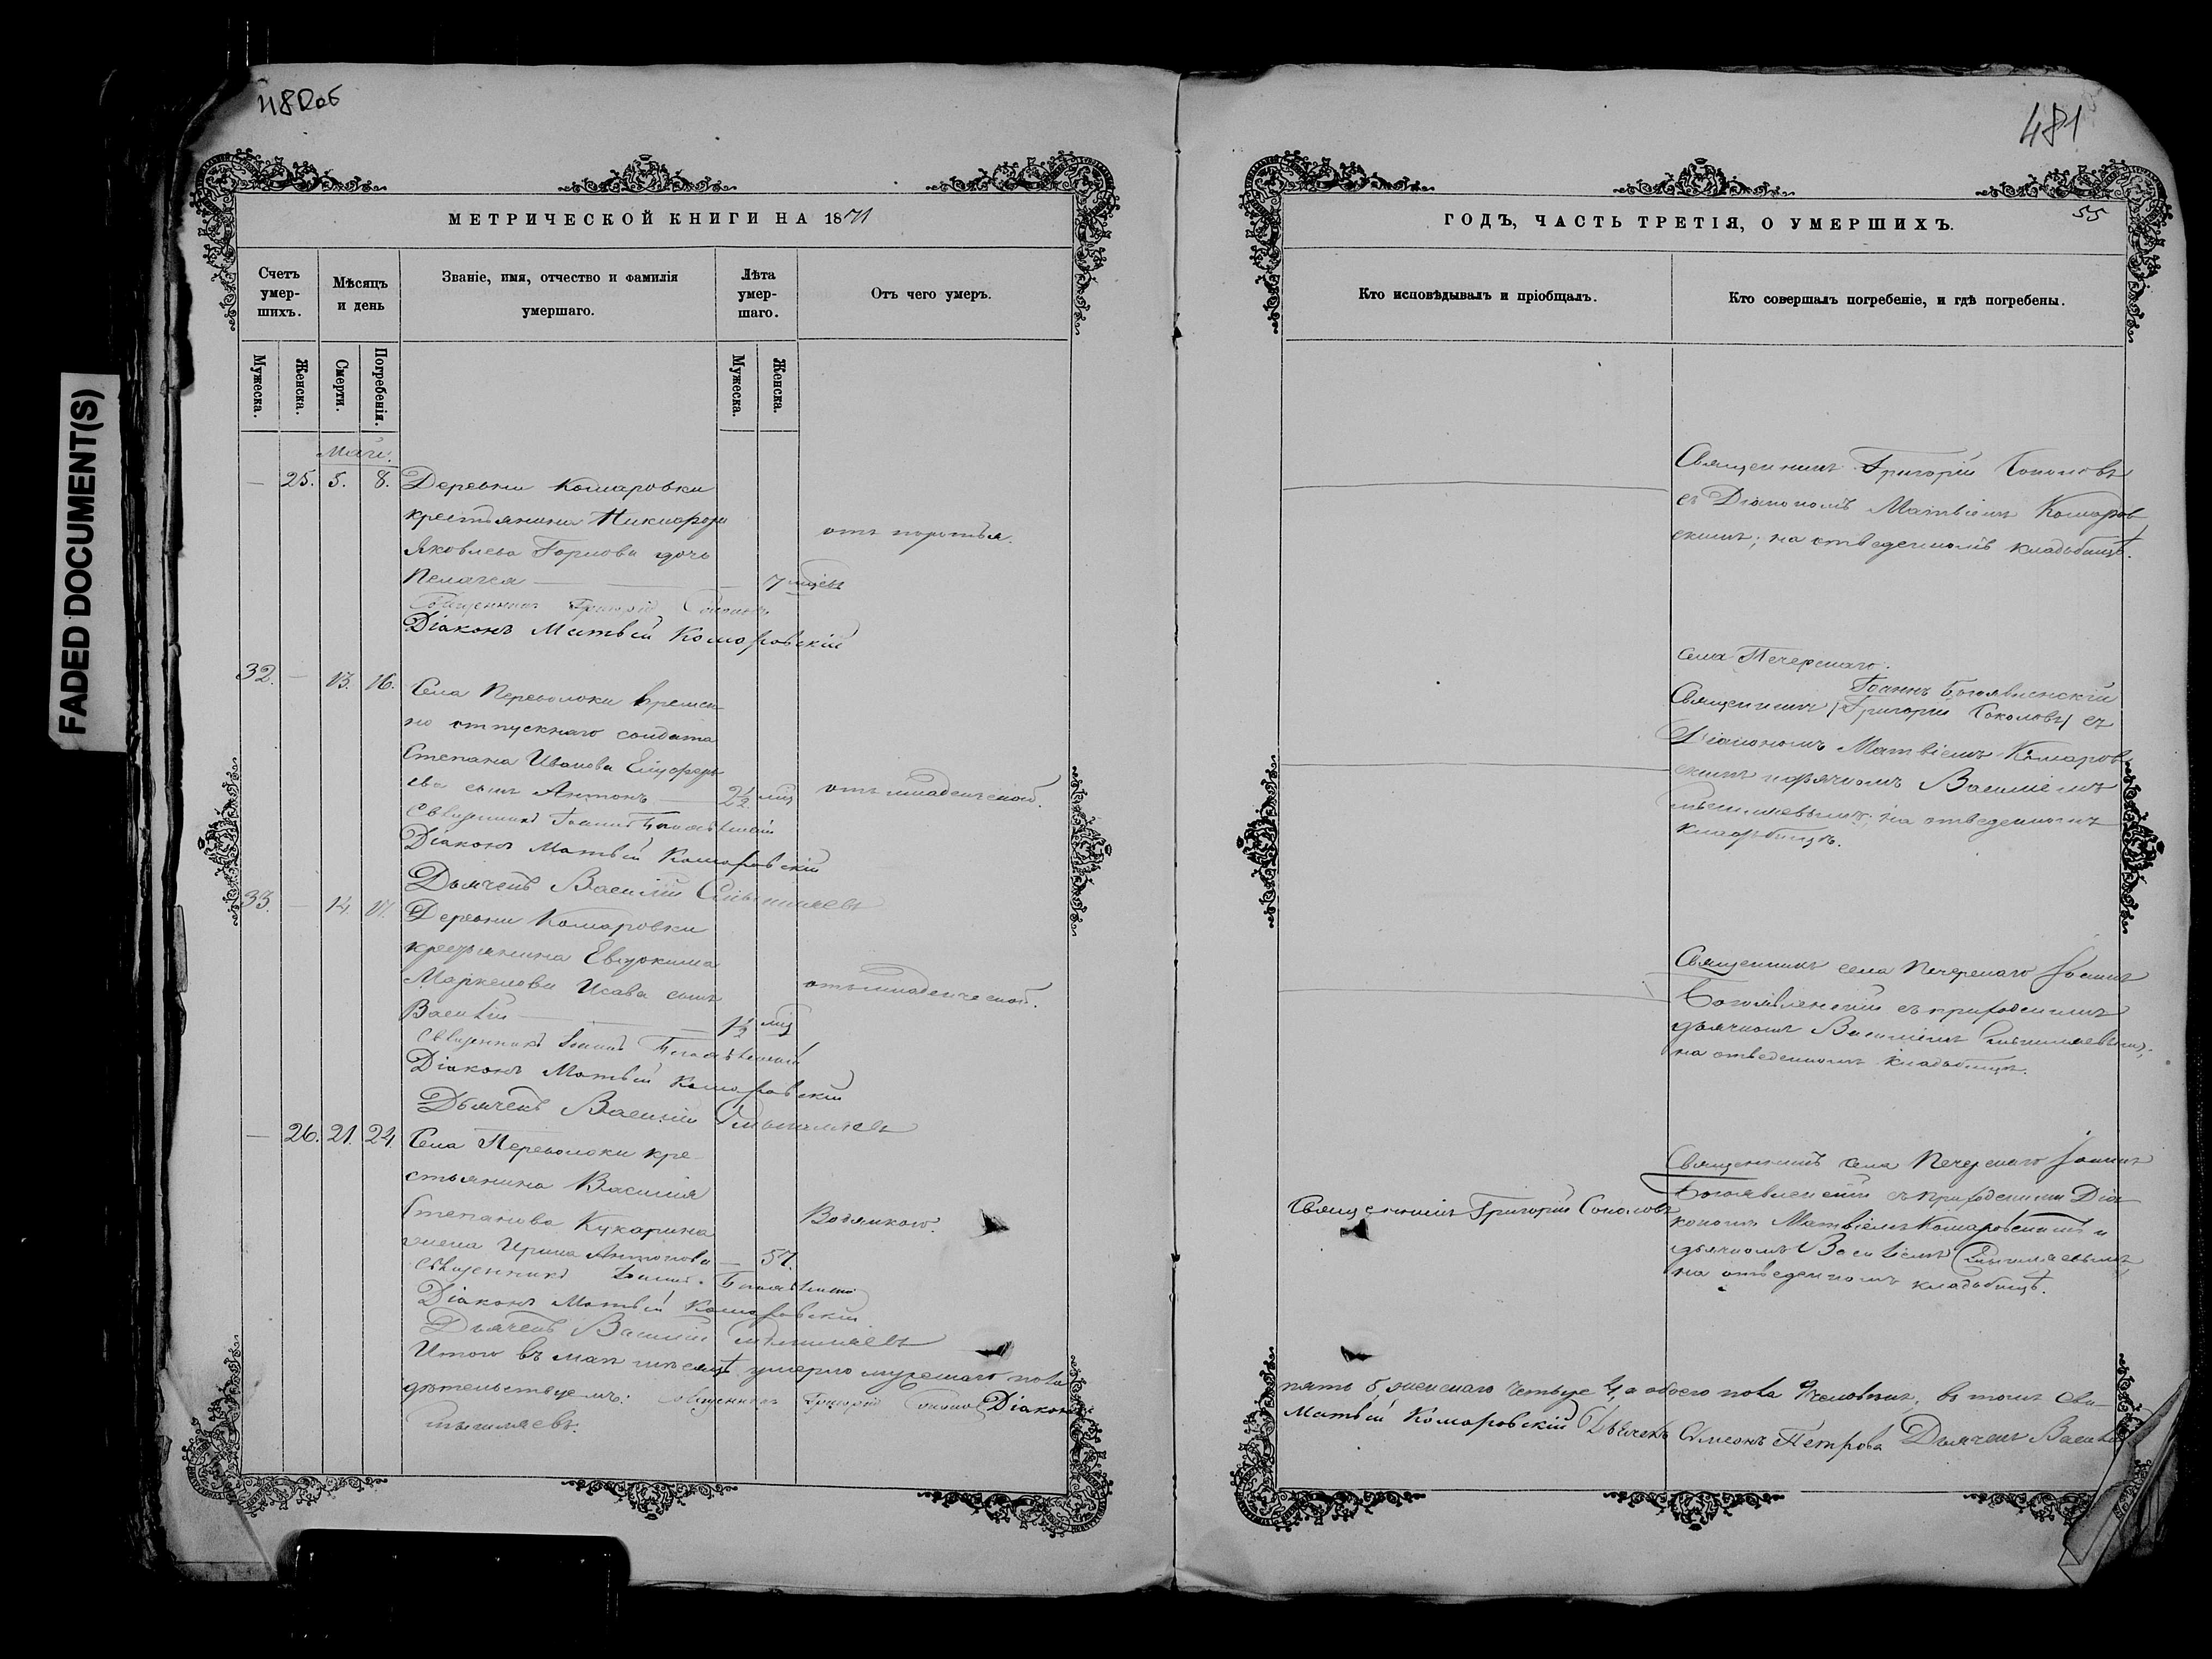 FADED DOCUMENT(S)
480об
481
МЕТРИЧЕСКОЙ КНИГИ НА 1871
Счетъ умер-шихъ.
Мѣсяцъ и день
Званіе, имя, отчество и фамилія умершаго.
Лѣта умер-шаго.
Отъ чего умеръ.
Мужеска.
Женска.
Смерти.
Погребенія.
Мужеска.
Женска.
Маій.
— 25. 5. 8. Деревни Комаровки
крестьянина Никифора
Яковлева дочь
Пелагея — 7
Священникъ Григорій Соколовъ
Діаконъ Матвѣй Комаровскій
32. — 13. 16. Села Переволоки времен
но отпускнаго солдата
Степана Иванова
ева сынъ Антонъ — 2½ мѣс отъ младенческой.
Священникъ Іоаннъ Богоявленскій
Діаконъ Матвѣй Комаровскій
Дьячекъ Василій Смышляевъ
33. — 14. 17. Деревни Комаровки
крестьянина Евдокима
Маркелова Исава сынъ
отъ младенческой.
Василій — 1½ мѣс
Священникъ Іоаннъ Богоявленскій
Діаконъ Матвѣй Комаровскій
Дьячекъ Василій Смышляевъ
— 26. 21. 24. Села Переволоки кре-
стьянина Василія
Степанова Кукарина
Водянкою.
жена Ирина Антонова — 57.
Священникъ Іоаннъ Богоявленскій
Діаконъ Матвѣй Комаровскій
Дьячекъ Василій Смышляевъ
Итого въ маѣ мѣсяцѣ умерло мужескаго пола
дѣтельствуемъ: Священникъ Григорій Соколовъ Діаконъ
Смышляевъ.
ГОДЪ, ЧАСТЬ ТРЕТІЯ, О УМЕРШИХЪ.
55
Кто исповѣдывалъ и пріобщалъ.
Кто совершалъ погребеніе, и гдѣ погребены.
Священникъ Григорій Соколовъ
съ Діакономъ Матвіемъ Комаров
скимъ; на отведенномъ кладбищѣ.
Села Печерскаго.
Іоаннъ Богоявленскій
Священникъ (Григорій Соколовъ) съ
Діакономъ Матвіемъ Комаров
скимъ и дьячкомъ Василіемъ
Смышляевымъ; на отведенномъ
кладбищѣ.
Священникъ села Печерскаго Іоаннъ
Богоявленскій съ приходскимъ
дьячкомъ Василіемъ Смышляевымъ;
на отведенномъ кладбищѣ.
Священникъ села Печерскаго Іоаннъ
Богоявленскій съ приходскими Діа
Священникъ Григорій Соколовъ
кономъ Матвіемъ Комаровскимъ и
дьячкомъ Василіемъ Смышляевымъ,
на отведенномъ кладбищѣ.
пять 5, женскаго четыре 4, а обоего пола 9 человѣкъ, въ томъ сви-
Матвѣй Комаровскій Дьячекъ Симеонъ Петровъ Дьячекъ Василій